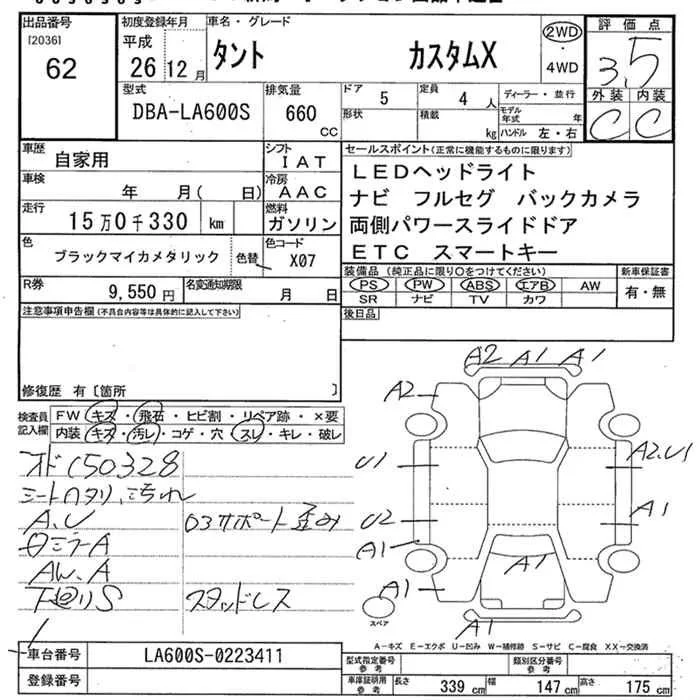 出品番号
[2036]
62
初度登録年月
平成
26 12月
車名・グレード
タント カスタムX
2WD
・
4WD
評価点
3.5
外装 内装
C C
型式
DBA-LA600S
排気量
660 CC
ドア 5
定員 4 人
ディーラー・並行
形状
積載 kg
モデル年式 年
ハンドル 左・右
車歴 自家用
シフト IAT
車検 年 月( 日)
冷房 AAC
走行 15万0千330 km
燃料 ガソリン
色 ブラックマイカメタリック 色替
色コード X07
R券 9,550円
名変通知期限 月 日
セールスポイント(正常に機能するものに限ります)
LEDヘッドライト
ナビ フルセグ バックカメラ
両側パワースライドドア
ETC スマートキー
装備品(純正品に限り○をつけてください)
新車保証書
PS PW ABS エアB AW
SR ナビ TV カワ
有・無
後日品
注意事項申告欄(不具合内容等は具体的に記入して下さい)
修復歴 有〔箇所 〕
検査員記入欄
FW キズ・飛石・ヒビ割・リペア跡・×要
内装 キズ・汚レ・コゲ・穴・スレ・キレ・破レ
オドC50328
シートヘタリ、汚れ
A、U
ロ3サポート歪み
ロミラーA
AW、A
下廻りS
スタッドレス
A2 A1 A1
A2
U1
A2、U1
U2
A1
A1
A1
A1
A1
スペア
A-キズ E-エクボ U-凹み W-補修跡 S-サビ C-腐食 XX-交換済
車台番号 LA600S-0223411
登録番号
型式指定番号 参考
類別区分番号 参考
車庫証明用 参考
長さ 339 cm
幅 147 cm
高さ 175 cm